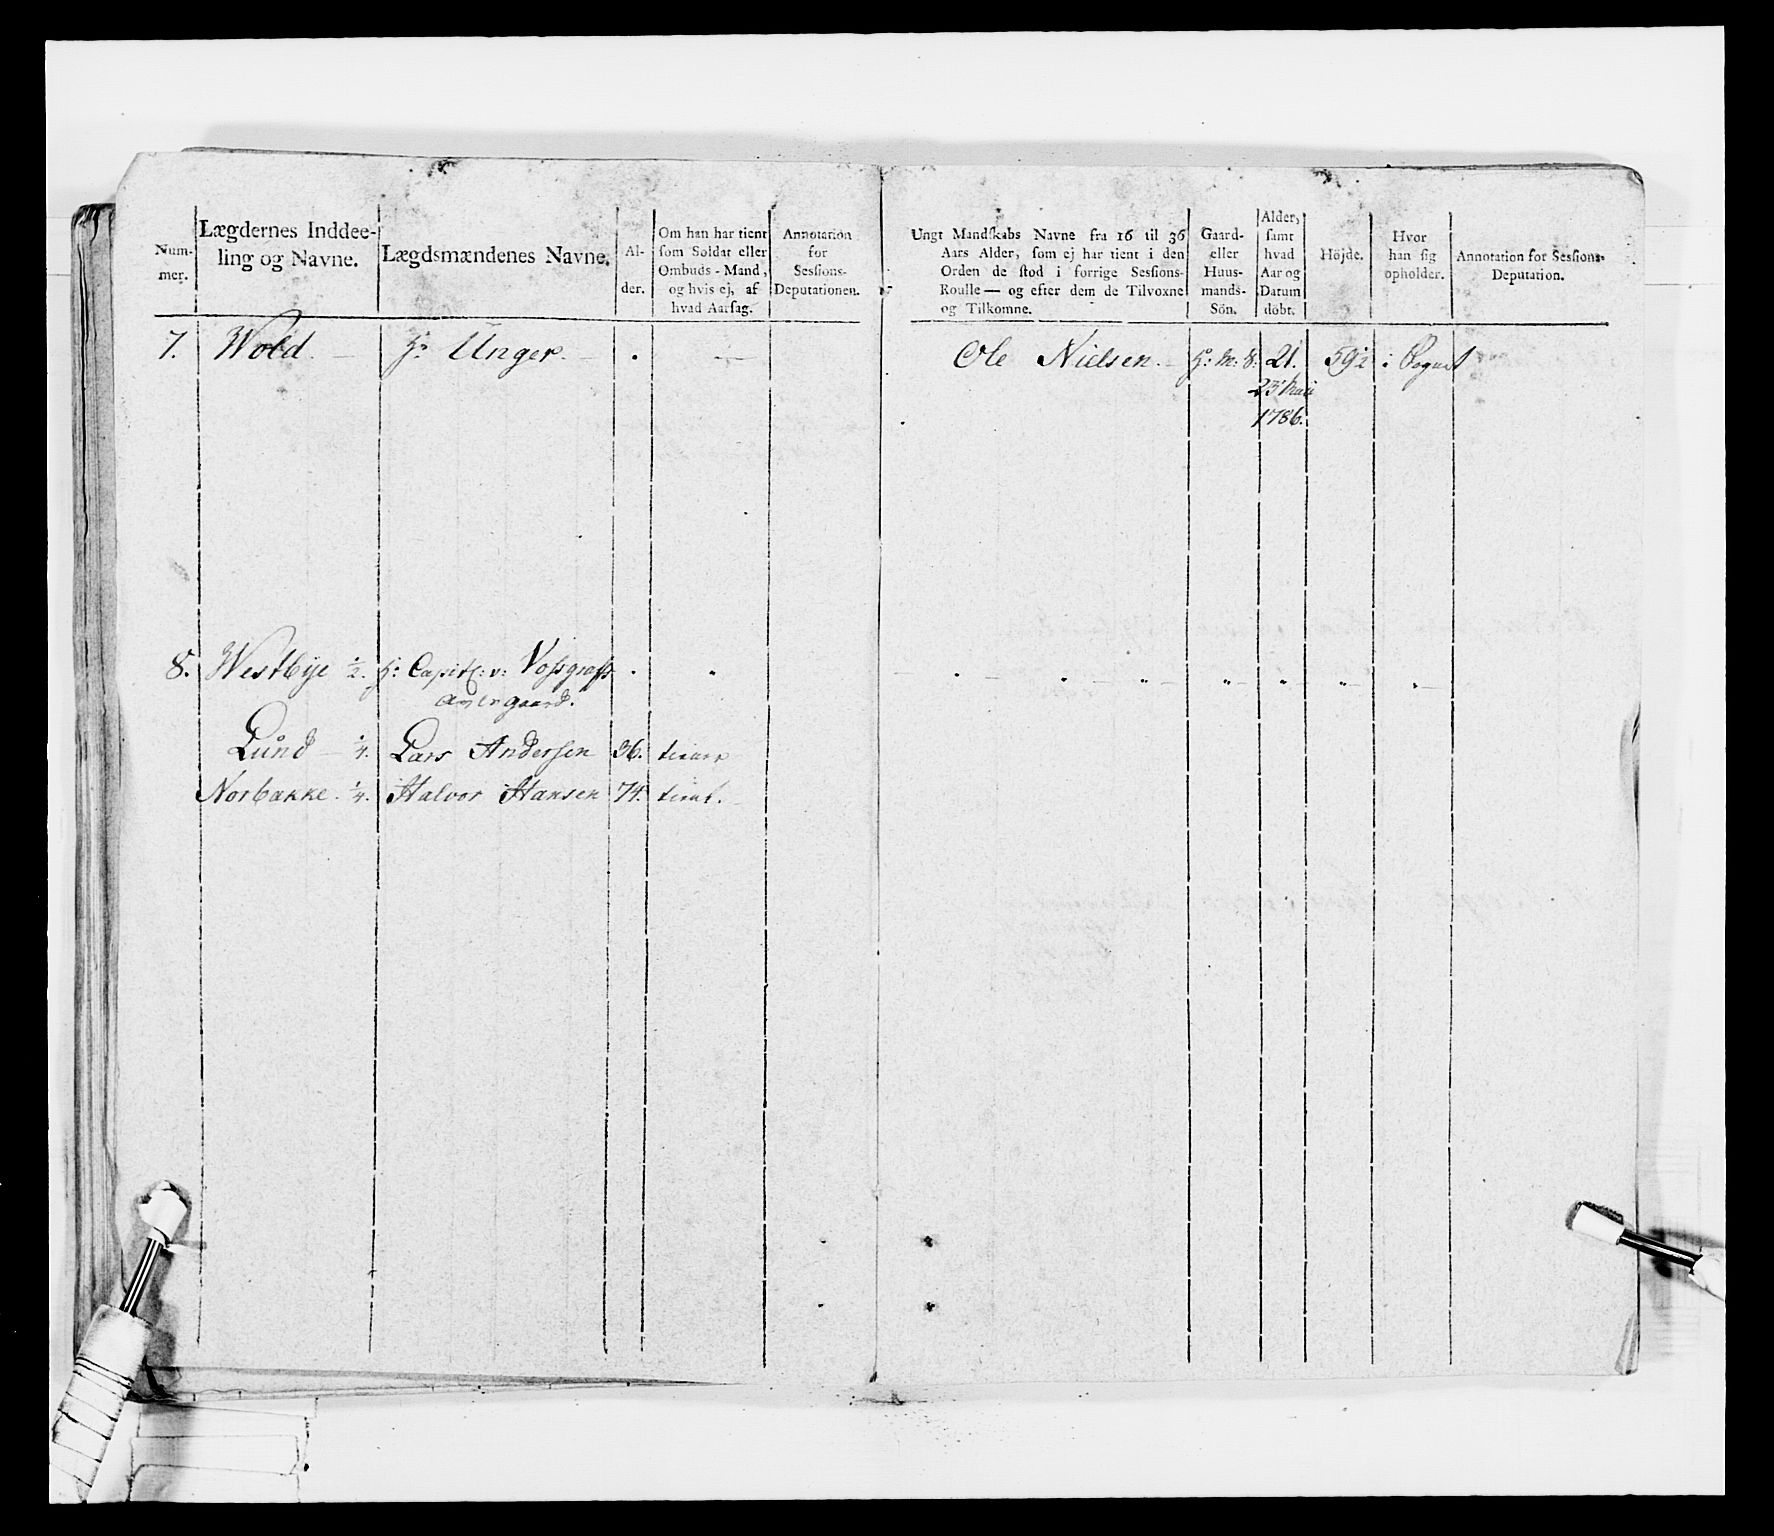 Num-
mer.
Lægdernes Inddee-
ling og Navne.
Lægdsmændenes Navne.
Al-
der.
Om han har tient
som Soldat eller
Ombuds-Mand,
og hvis ej, af
hvad Aarsag.
Annotation
for
Sessions-
Deputationen.
Ungt Mandskabs Navne fra 16 til 36
Aars Alder, som ej har tient i den
Orden de stod i forrige Sessions-
Roulle — og efter dem de Tilvoxne
og Tilkomne.
Gaard-
eller
Huus-
mands-
Sön.
Alder,
samt
hvad
Aar og
Datum
döbt.
Höjde.
Hvor
han sig
opholder.
Annotation for Sessions-
Deputation.
7. Wold. — Hr Unger. — Ole Nielsen. — H: M: S: 21. 59½ i Sognet
23 Maii
1786.
8. Westbye ½. Hr Capit: v:
Lund — ¼. Lars Andersen 36.
Norbakke. ¼. Halvor Hansen 74. tient.